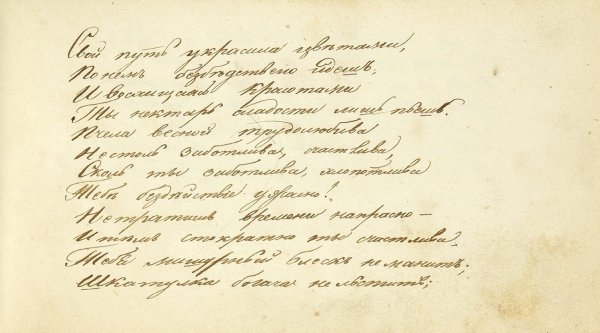 Свой путь украсила цвѣтами,
По немъ безбѣдственно идешь,
И восхищаясь красотами
Ты нектаръ сладости лишь пьешь.
Пчела весной трудолюбива
Не столь заботлива, счастлива,
Сколь ты заботлива, хлопотлива
Тебѣ бездѣйствіе ужасно!
Не тратишь времени напрасно —
И тѣмъ стократно ты счастлива.
Тебя мишурный блескъ не манитъ;
Шкатулка богача не льститъ;